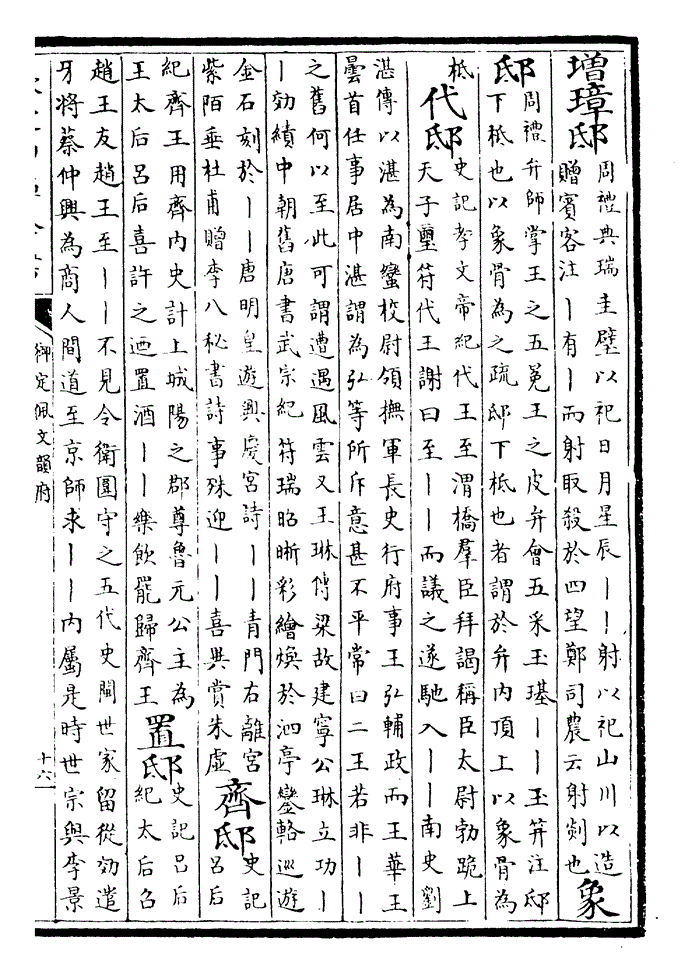 增璋邸
周禮典瑞圭璧以祀日月星辰丨丨射以祀山川以造
贈賓客注丨有丨而射取殺於四望鄭司農云射剡也
象
邸
周禮弁師掌王之五冕王之皮弁會五采玉璂丨丨玉笄注邸
下柢也以象骨為之疏邸下柢也者謂於弁内頂上以象骨為
柢
代邸
史記孝文帝紀代王至渭橋羣臣拜謁稱臣太尉勃跪上
天子璽符代王謝曰至丨丨而議之遂馳入丨丨南史劉
湛傳以湛為南蠻校尉領撫軍長史行府事王弘輔政而王華王
曇首任事居中湛謂為弘等所斥意甚不平常曰二王若非丨丨
之舊何以至此可謂遭遇風雲又王琳傳梁故建寧公琳立功丨
丨効績中朝舊唐書武宗紀符瑞昭晰彩繪煥於泗亭鑾輅巡遊
金石刻於丨丨唐明皇遊興慶宮詩丨丨青門右離宮
紫陌垂杜甫贈李八秘書詩事殊迎丨丨喜異賞朱虛
齊邸
史記
呂后
紀齊王用齊内史計上城陽之郡尊魯元公主為
王太后呂后喜許之迺置酒丨丨樂飲罷歸齊王
置邸
史記呂后
紀太后召
趙王友趙王至丨丨不見令衛圍守之五代史閩世家留從効遣
牙将蔡仲興為商人間道至京師求丨丨内屬是時世宗與李景
御定佩文韻府
十六